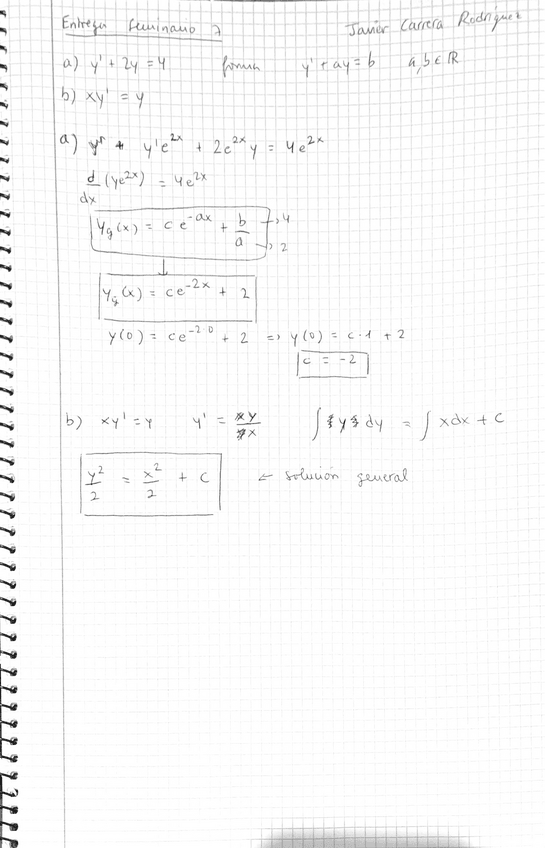 Entrega Seminario 7 Javier Carrera Rodríguez
a) y' + 2y = 4 forma y' + ay = b a,b ∈ ℝ
b) xy' = y
a) y'e^{2x} + 2e^{2x}y = 4e^{2x}
d/dx (ye^{2x}) = 4e^{2x}
y_g(x) = ce^{-ax} + b/a → 4 → 2
↓
y_g(x) = ce^{-2x} + 2
y(0) = ce^{-2·0} + 2 => y(0) = c·1 + 2
c = -2
b) xy' = y y' = y/x ∫ y dy = ∫ x dx + C
y²/2 = x²/2 + C ← solución general